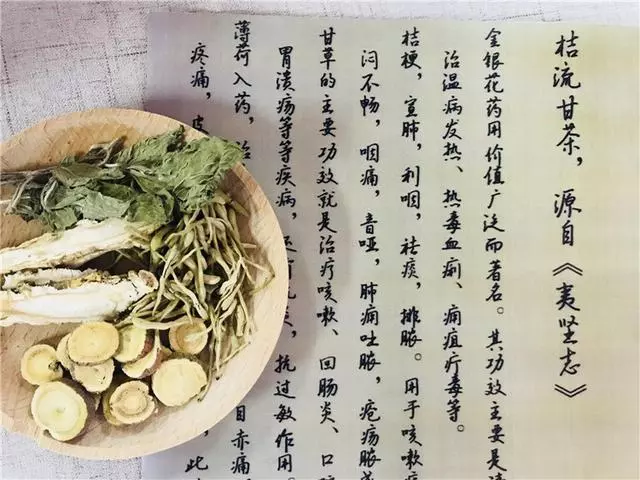 桔流甘茶，源自《夷坚志》
金银花药用价值广泛而著名。其功效主要是清
治温病发热、热毒血痢、痈疽疔毒等。
桔梗，宣肺，利咽，祛痰，排脓。用于咳嗽痰
闷不畅，咽痛，音哑，肺痈吐脓，疮疡脓
甘草的主要功效就是治疗咳嗽、回肠炎、口
胃溃疡等等疾病，还 抗过敏作用。
薄荷入药，治 目赤痛
疼痛，皮 ，此